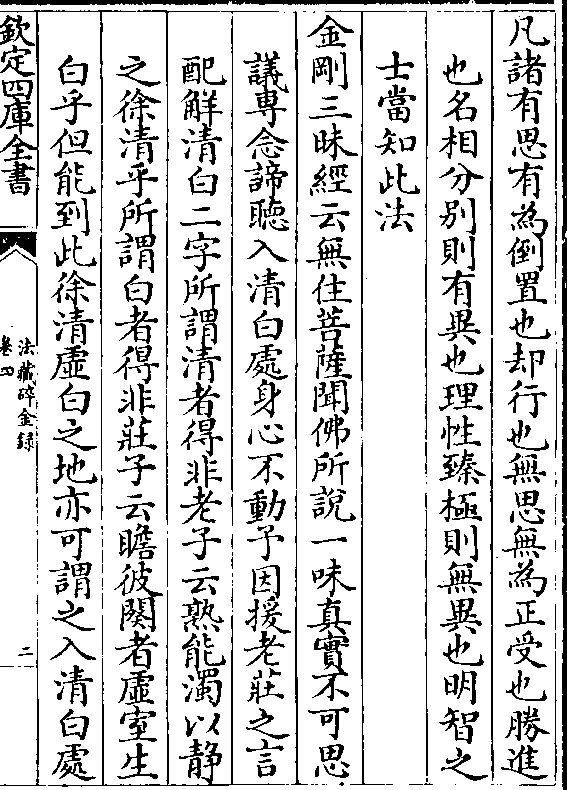 凡諸有思有為倒置也却行也無思無為正受也勝進
也名相分别則有異也理性臻極則無異也明智之
士當知此法
金剛三昧經云無住菩薩聞佛所說一味真實不可思
議專念諦聽入清白處身心不動予因援老莊之言
配解清白二字所謂清者得非老子云熟能濁以静
之徐清乎所謂白者得非莊子云瞻彼闋者虛室生
白乎但能到此徐清虛白之地亦可謂之入清白處
欽定四庫全書
法藏碎金録
卷四
二